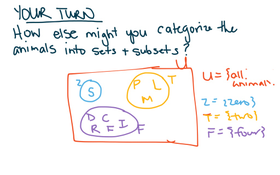 YOUR TURN
How else might you categorize the
animals into sets + subsets?
U
U = {all animals}
Z
S
P L
M
T
Z = {zero}
T = {two}
D C
R F I
F
F = {four}